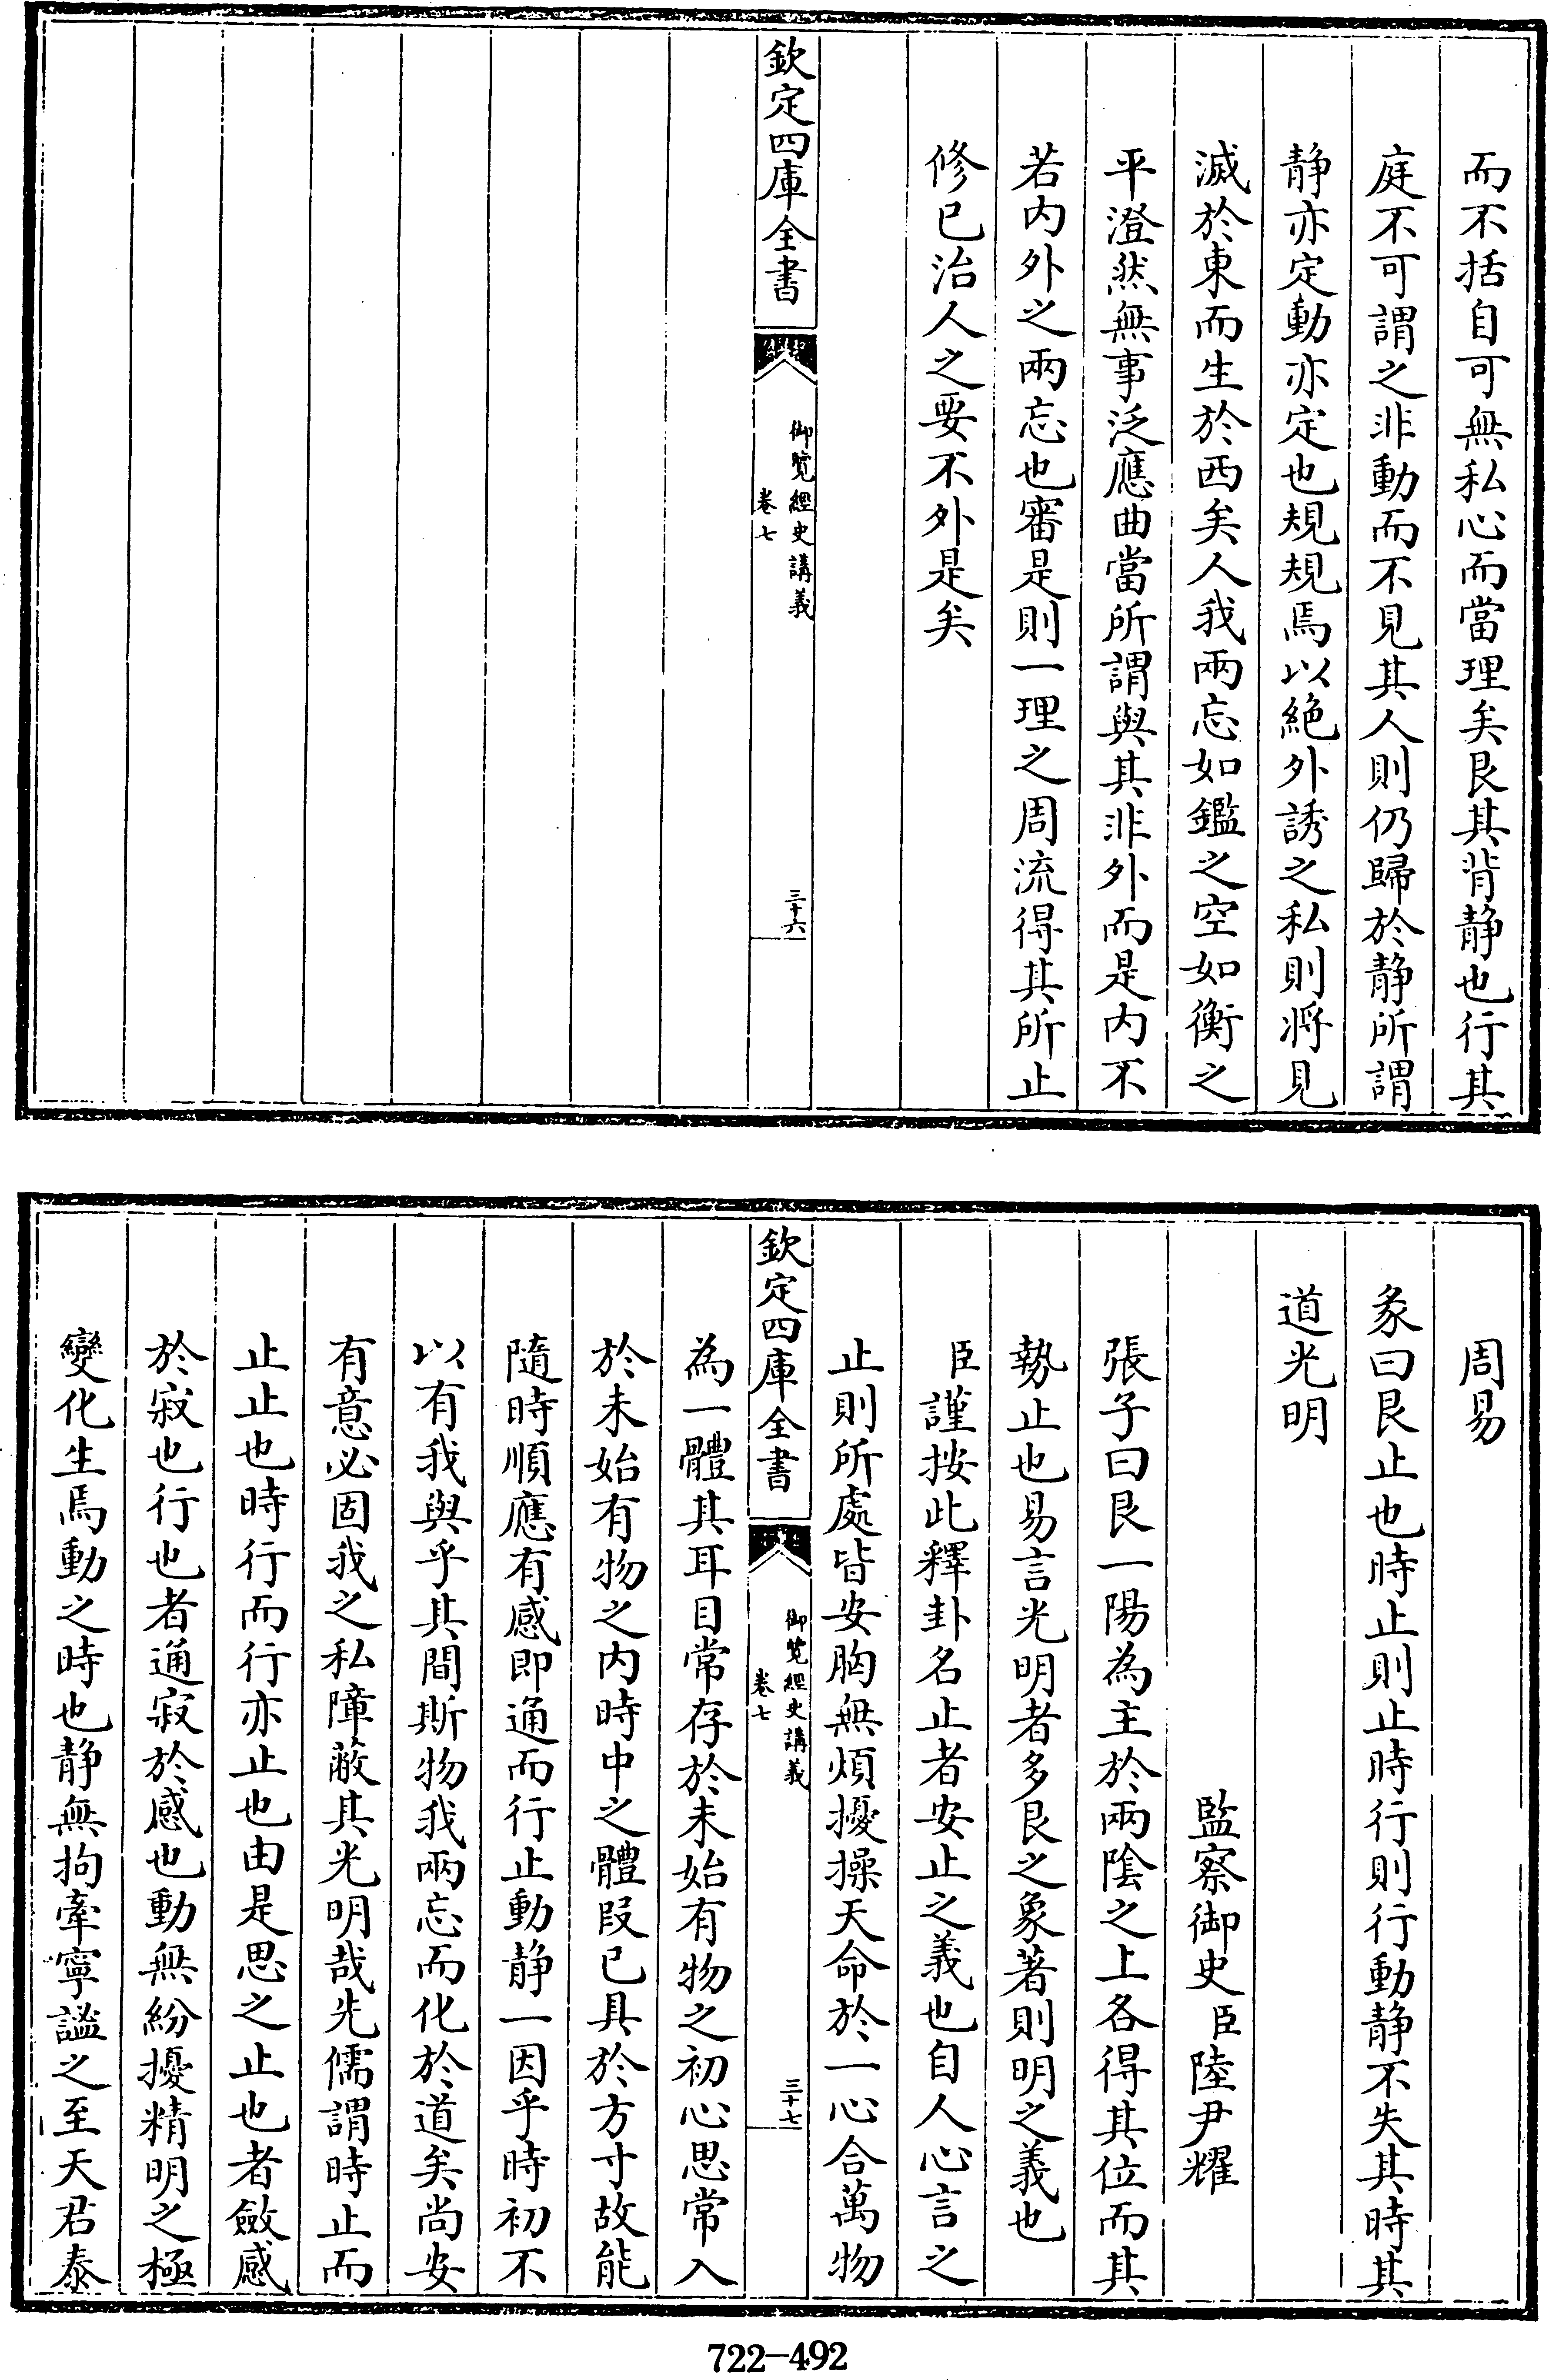 而不括自可無私心而當理矣艮其背静也行其
庭不可謂之非動而不見其人則仍歸於静所謂
静亦定動亦定也規規焉以絶外誘之私則將見
滅於東而生於西矣人我兩忘如鑑之空如衡之
平澄然無事泛應曲當所謂與其非外而是内不
若内外之兩忘也審是則一理之周流得其所止
修已治人之要不外是矣
欽定四庫全書
御覽經史講義
卷七
三十六
周易
彖曰艮止也時止則止時行則行動静不失其時其
道光明
監察御史臣陸尹耀
張子曰艮一陽為主於兩陰之上各得其位而其
勢止也易言光明者多艮之象著則明之義也
臣謹按此釋卦名止者安止之義也自人心言之
止則所處皆安胸無煩擾操天命於一心合萬物
欽定四庫全書
御覽經史講義
卷七
三十七
為一體其耳目常存於未始有物之初心思常入
於未始有物之内時中之體段已具於方寸故能
隨時順應有感即通而行止動静一因乎時初不
以有我與乎其間斯物我兩忘而化於道矣尚安
有意必固我之私障蔽其光明哉先儒謂時止而
止止也時行而行亦止也由是思之止也者斂感
於寂也行也者通寂於感也動無紛擾精明之極
變化生焉動之時也静無拘牽寧謐之至天君泰
722-492